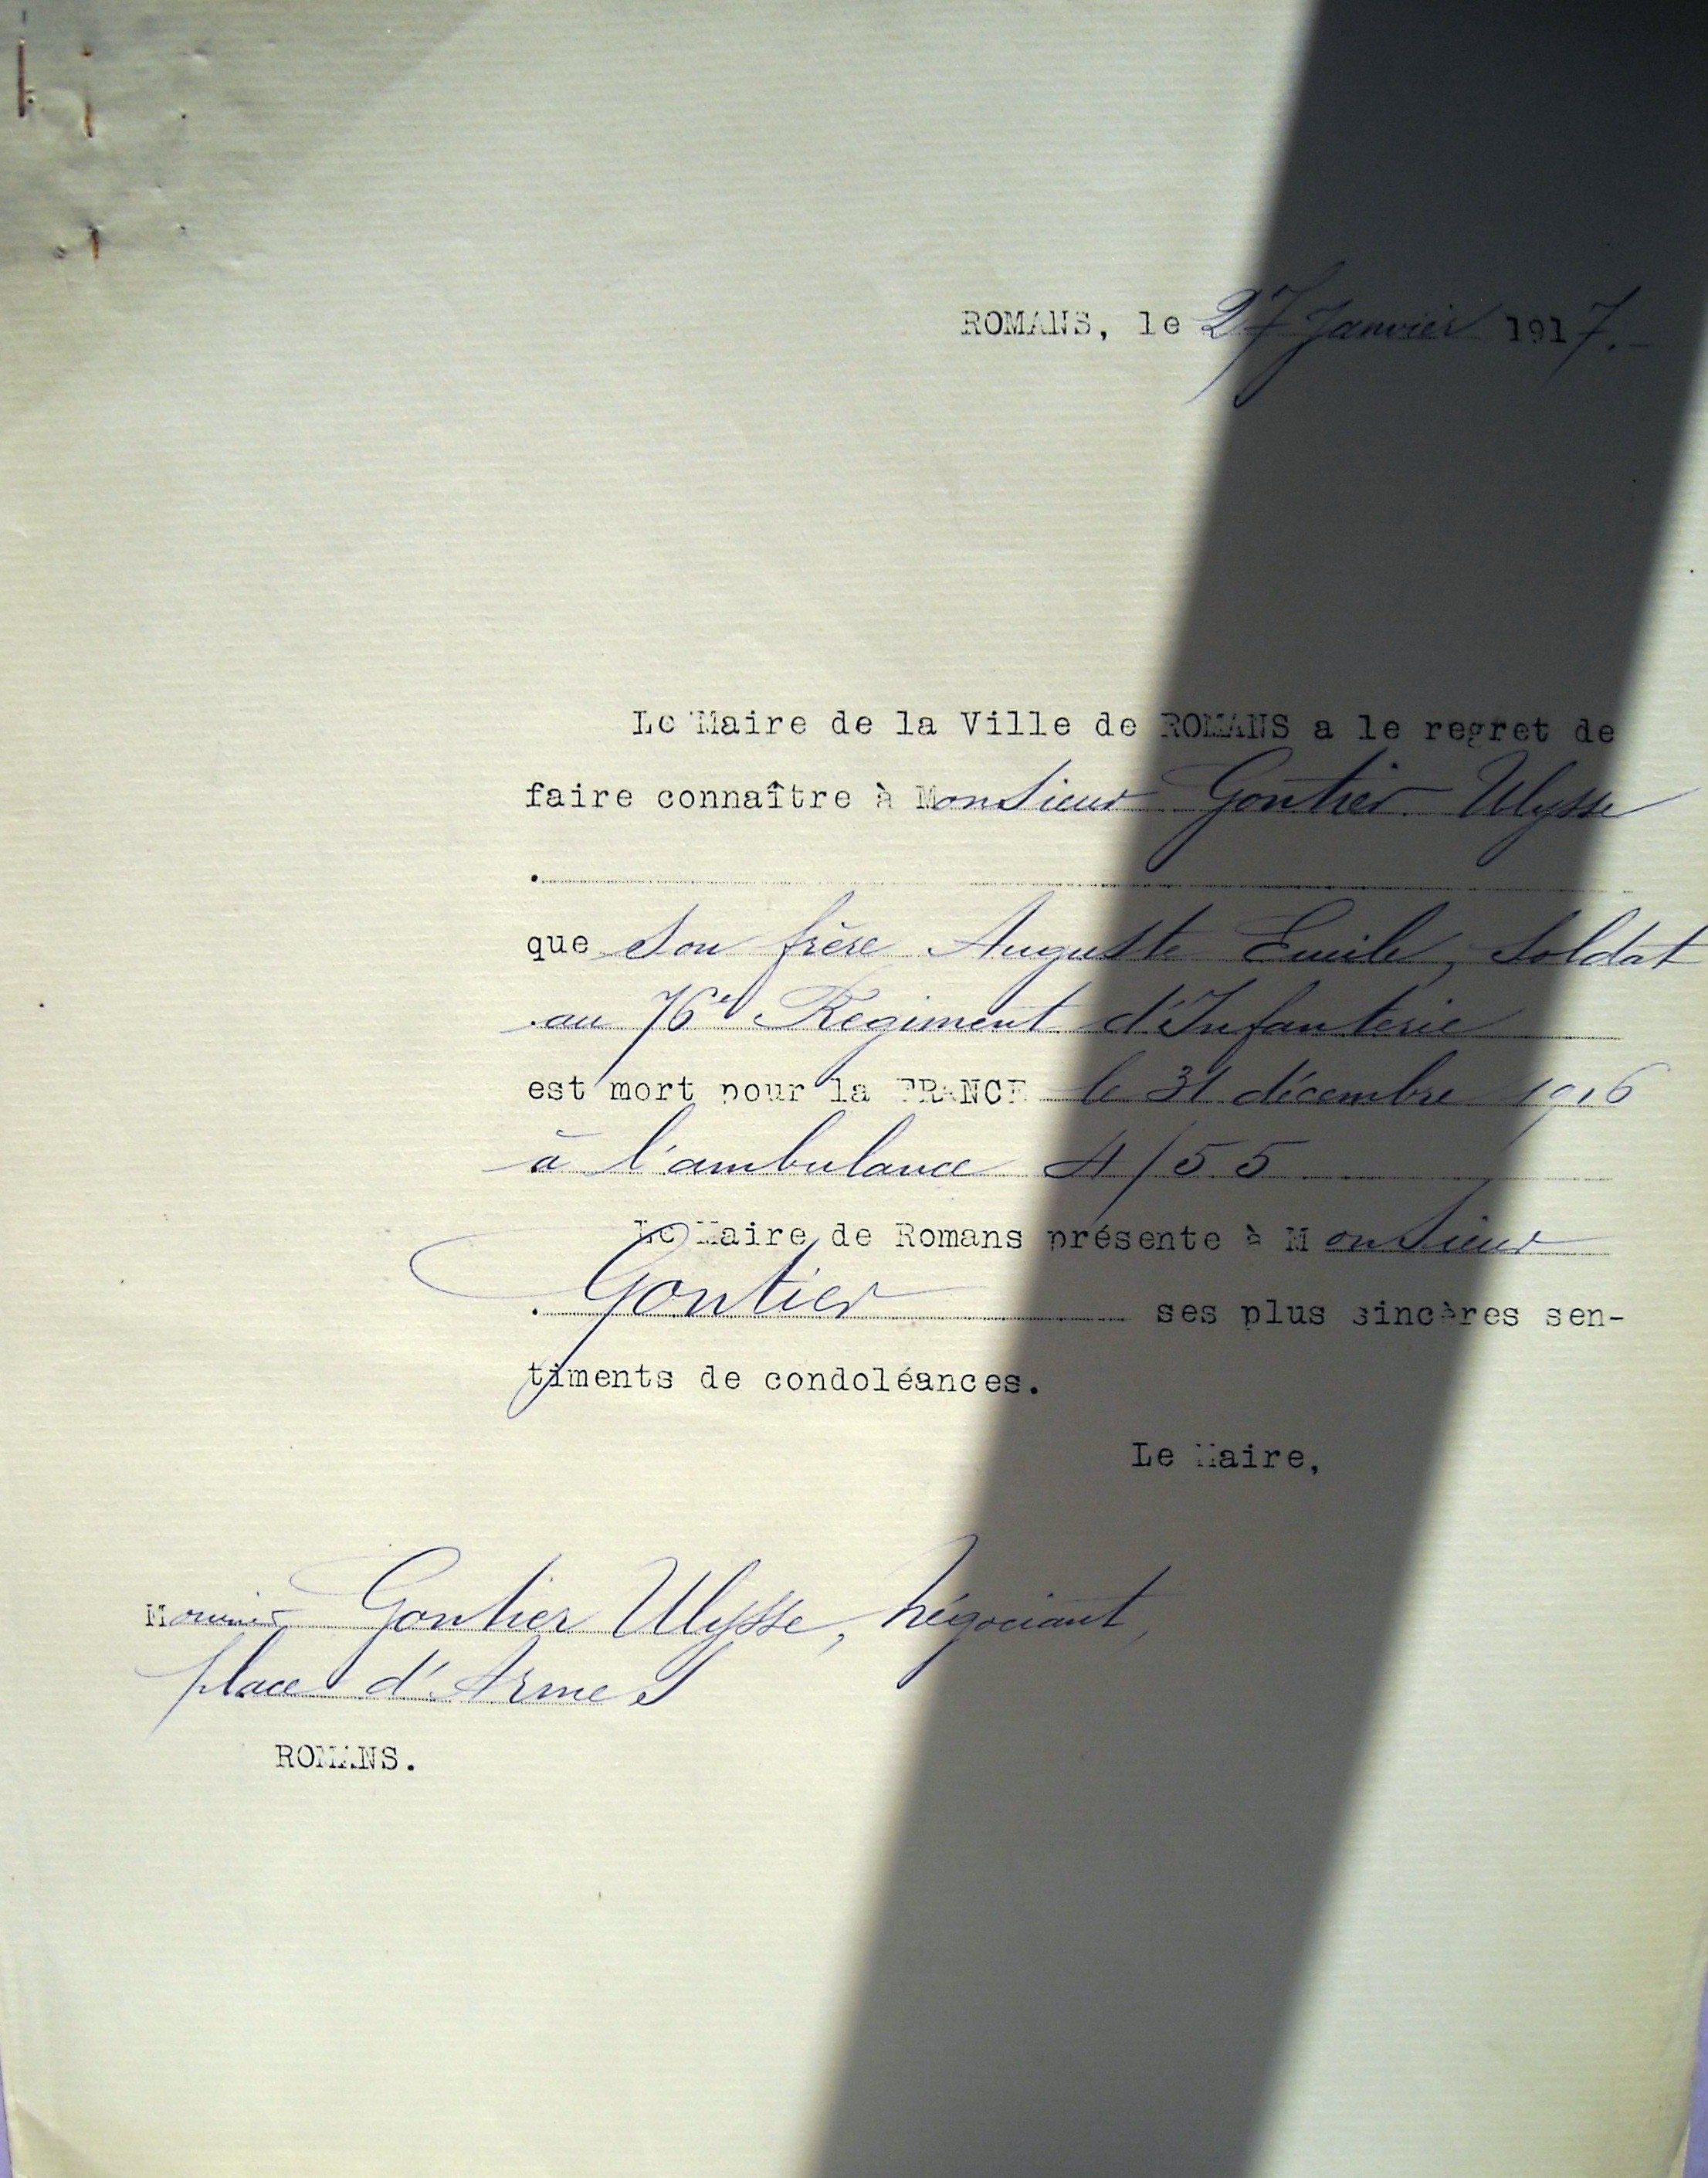 ROMANS, le 27 Janvier 1917.-
Le Maire de la Ville de ROMANS a le regret de
faire connaître à Monsieur Gontier Ulysse
.
que son frère Auguste Emile, Soldat
.au 76e Régiment d'Infanterie
est mort pour la FRANCE le 31 décembre 1916
à l'ambulance 4/55
Le Maire de Romans présente à Monsieur
. Gontier ses plus sincères sen-
timents de condoléances.
Le Maire,
Monsieur Gontier Ulysse, négociant,
place d'Armes
ROMANS.